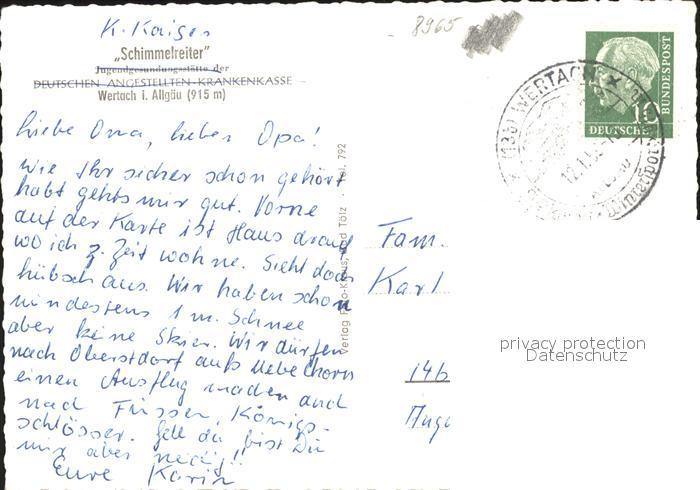 K. Kaiser
8965
„Schimmelreiter"
Jugendgesundungsstätte der
DEUTSCHEN ANGESTELLTEN-KRANKENKASSE
Wertach i. Allgäu (915 m)
Liebe Oma, lieber Opa!
Wie Ihr sicher schon gehört
habt gehts mir gut. Vorne
auf der Karte ist Haus drauf
wo ich z. Zeit wohne. Sieht doch
hübsch aus. Wir haben schon
mindestens 1 m. Schnee
aber keine Skier. Wir dürfen
nach Oberstdorf aufs Nebelhorn
einen Ausflug machen und
nach Füssen, Königs-
schlösser. Gell du bist Du
mir aber neidig!
Eure Karin
Verlag Foto-Kraus, Bad Tölz · Tel. 792
Fam.
Karl
14b
Augs
10
DEUTSCHE
BUNDESPOST
(13b) WERTACH
Wintersport
privacy protection
Datenschutz